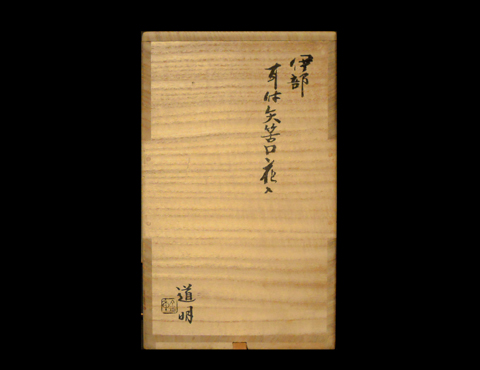 伊部
耳付矢筈口花入
道明